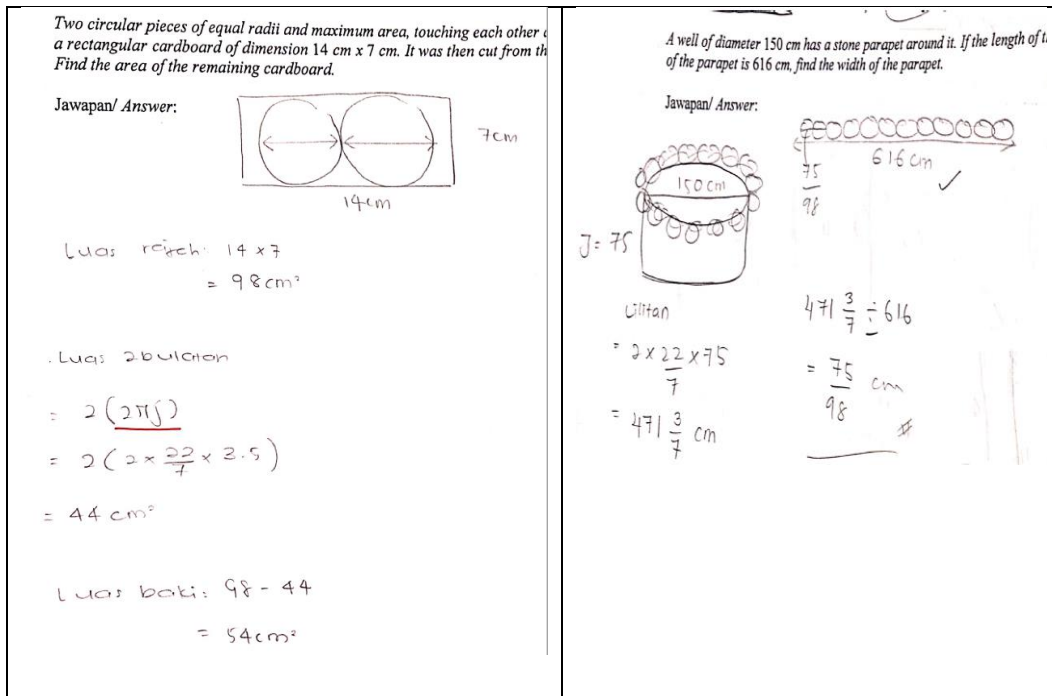 Two circular pieces of equal radii and maximum area, touching each other
a rectangular cardboard of dimension 14 cm x 7 cm. It was then cut from th
Find the area of the remaining cardboard.
Jawapan/ Answer:
7cm
14cm
Luas : 14 x 7
= 98cm²
Luas 2 bulatan
= 2(2πj)
= 2(2 x 22/7 x 3.5)
= 44 cm²
Luas baki: 98 - 44
= 54cm²
A well of diameter 150 cm has a stone parapet around it. If the length of t
of the parapet is 616 cm, find the width of the parapet.
Jawapan/ Answer:
616 cm
75/98
150 cm
J = 75
Lilitan
= 2 x 22/7 x 75
= 471 3/7 cm
471 3/7 ÷ 616
= 75/98 cm